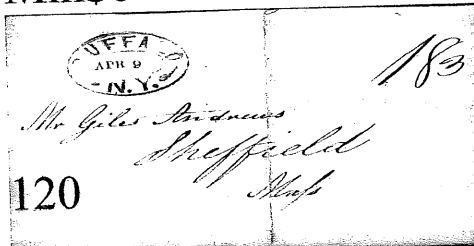 BUFFALO
APR 9
N.Y.
183
Mr Giles Andrews
Sheffield
Mass
120